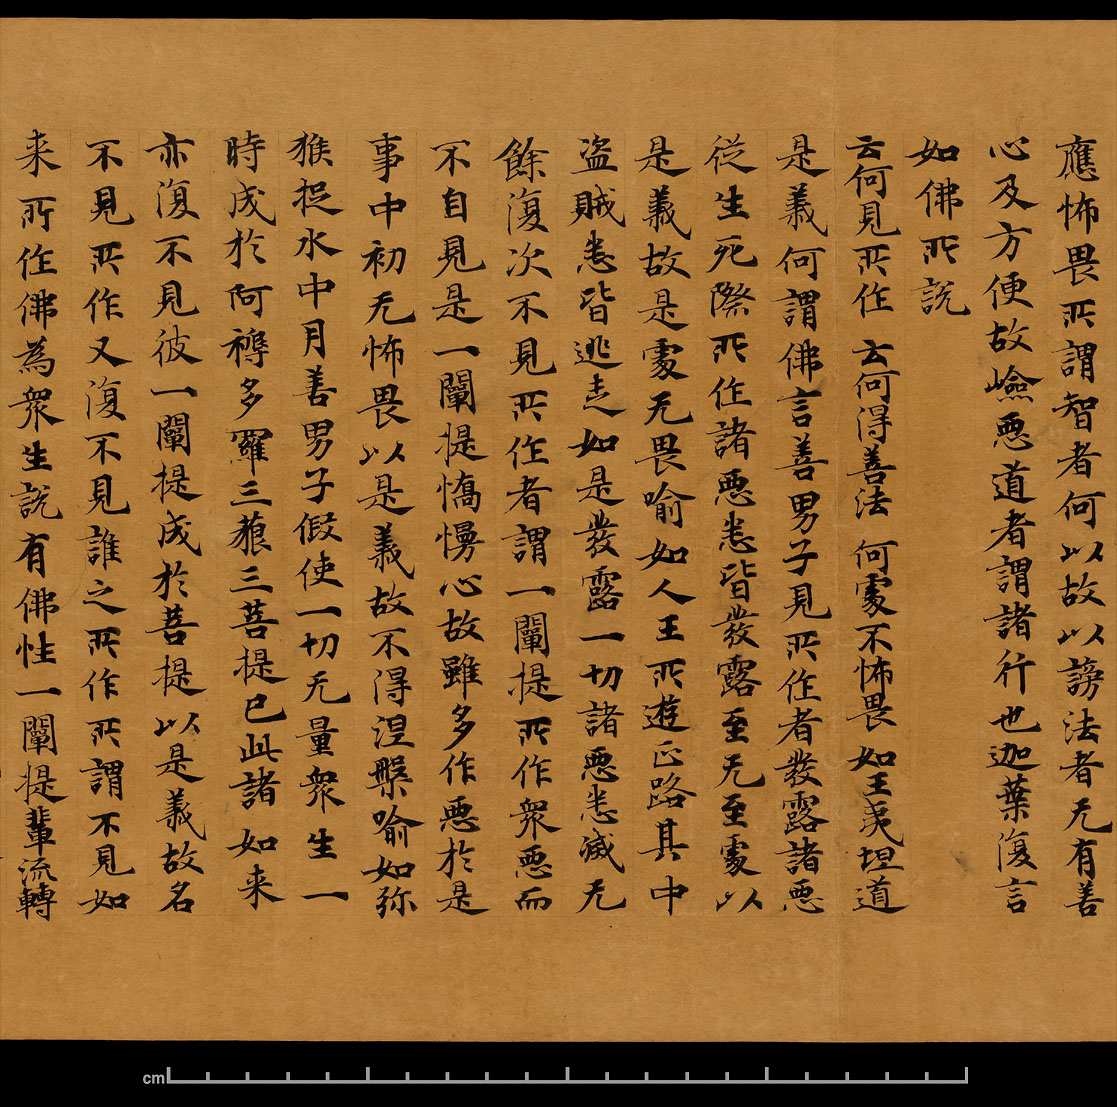 應怖畏所謂智者何以故以謗法者无有善
心及方便故嶮惡道者謂諸行也迦葉復言
如佛所說
云何見所作 云何得善法 何處不怖畏 如王夷坦道
是義何謂佛言善男子見所作者發露諸惡
從生死際所作諸惡悉皆發露至无至處以
是義故是處无畏喻如人王所遊正路其中
盜賊悉皆逃走如是發露一切諸惡悉滅无
餘復次不見所作者謂一闡提所作衆惡而
不自見是一闡提憍慢心故雖多作惡於是
事中初无怖畏以是義故不得涅槃喻如弥
猴捉水中月善男子假使一切无量衆生一
時成於阿耨多羅三藐三菩提已此諸如来
亦復不見彼一闡提成於菩提以是義故名
不見所作又復不見誰之所作所謂不見如
来所作佛為衆生說有佛性一闡提輩流轉